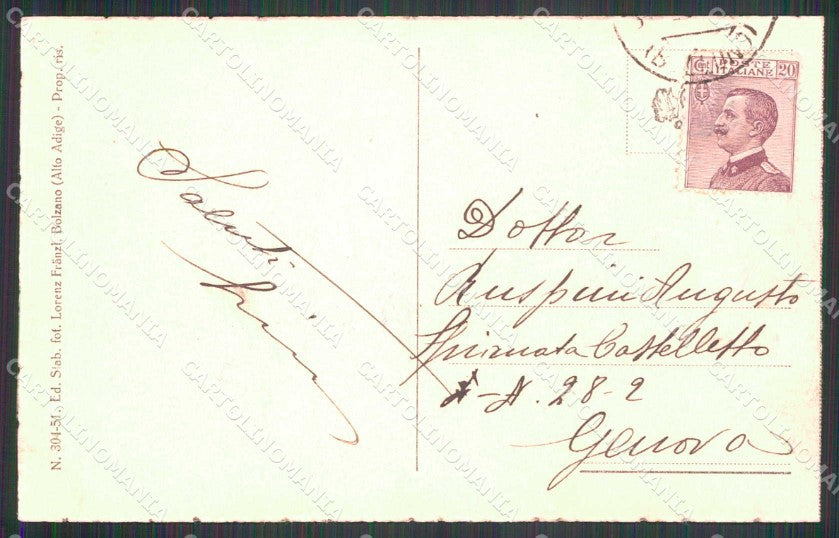 N. 304-51., Ed. Stab. fot. Lorenz Fränzl, Bolzano (Alto Adige) - Prop. ris.
POSTE
ITALIANE 20
Saluti
Dottor
Ruspini Augusto
Spianata Castelletto
N. 28-2
Genova
CARTOLINOMANIA